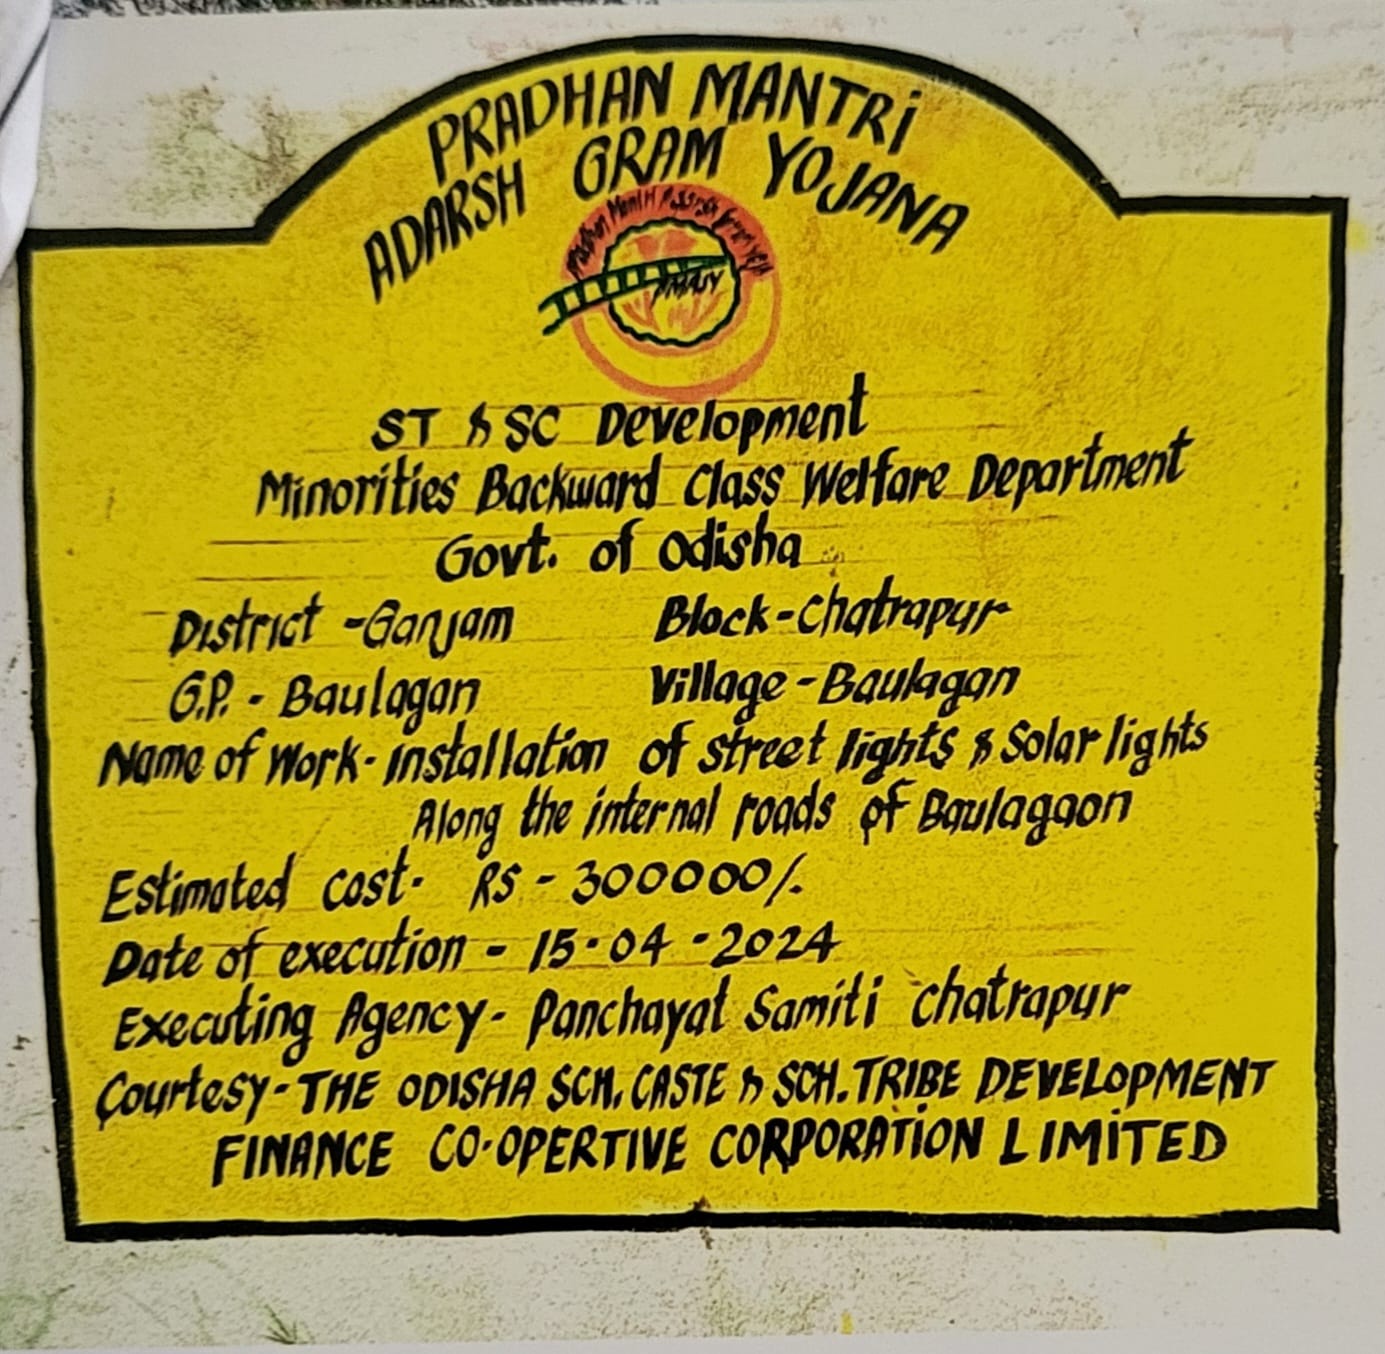 PRADHAN MANTRi
ADARSH GRAM YOJANA
PMAGY
ST & SC Development
Minorities Backward Class Welfare Department
Govt. of Odisha
District - Ganjam Block - Chatrapur
G.P. - Baulagan Village - Baulagan
Name of Work - installation of street lights & Solar lights
Along the internal roads of Baulagaon
Estimated cost - RS - 300000/.
Date of execution - 15-04-2024
Executing Agency - Panchayat Samiti chatrapur
Courtesy - THE ODISHA SCH. CASTE & SCH. TRIBE DEVELOPMENT
FINANCE CO-OPERTIVE CORPORATiON LIMiTED